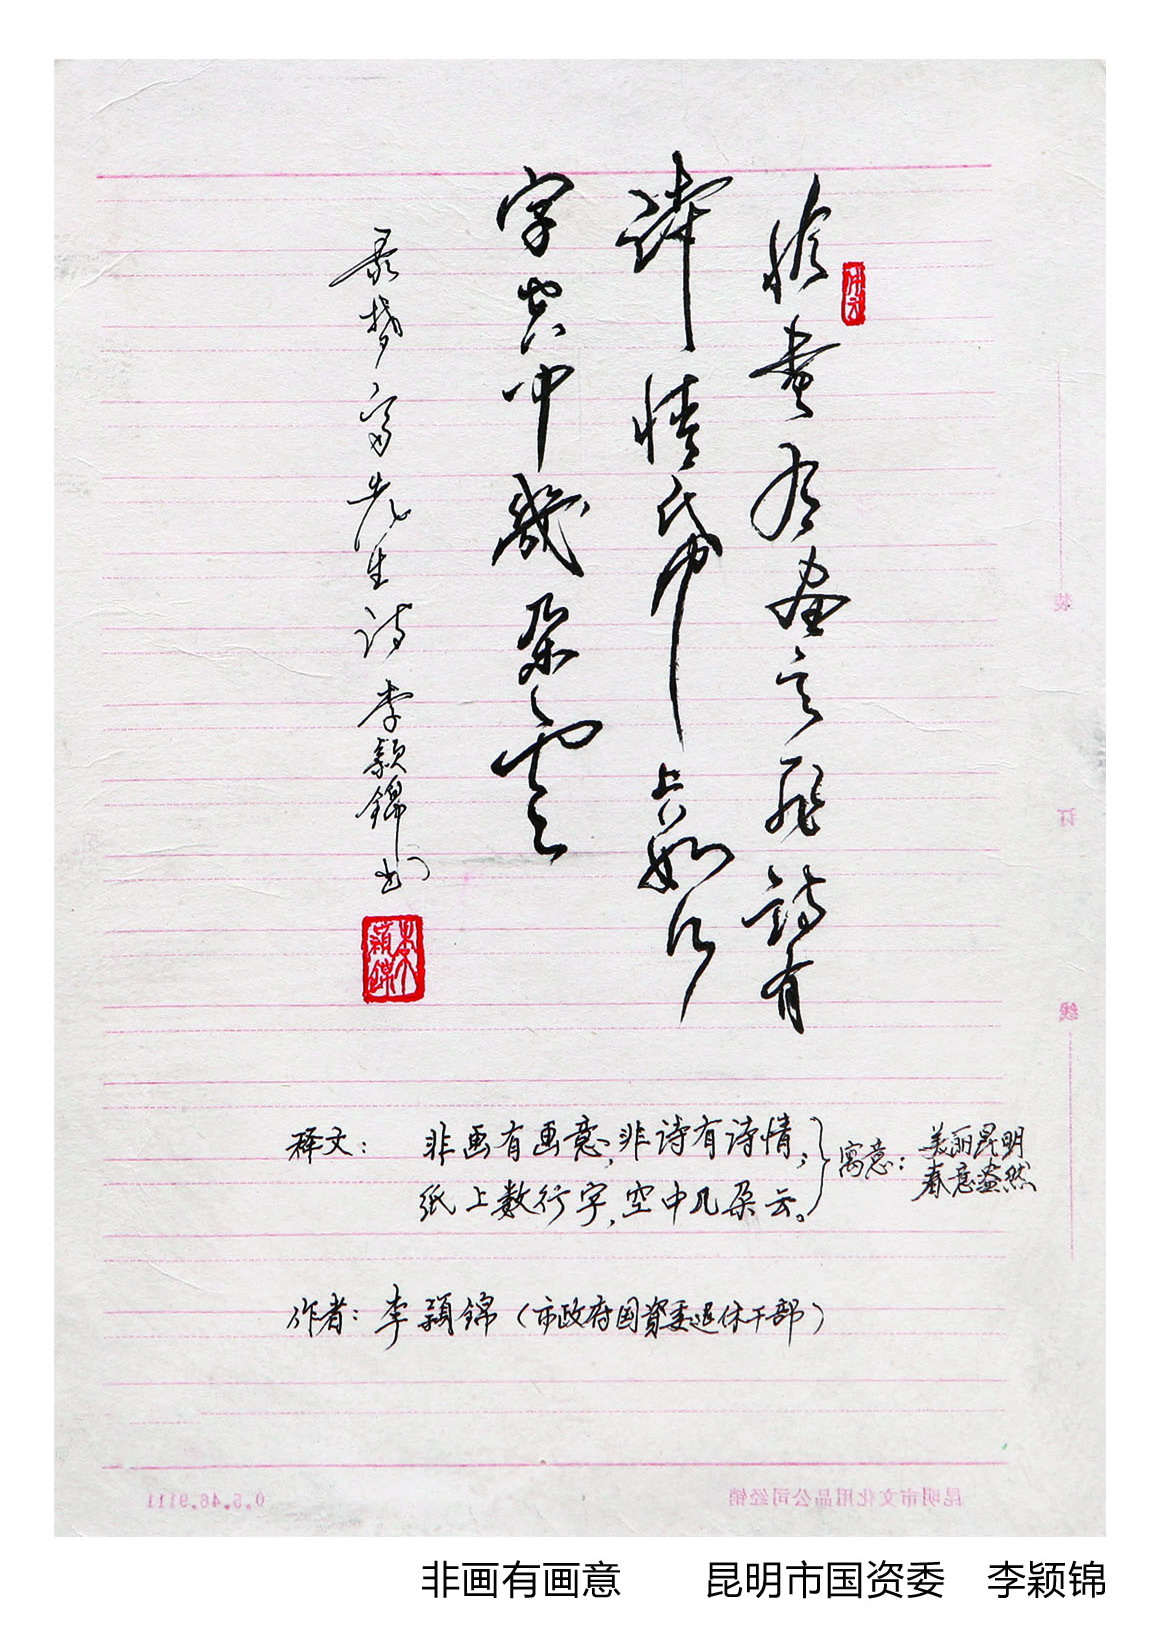 非畫有畫意非詩有
詩情紙上數行
字空中幾朵雲
先生诗 李颖锦书
李穎錦
装
订
线
释文：非画有画意，非诗有诗情，
纸上数行字，空中几朵云。
寓意：美丽昆明
春意盎然
作者：李颖锦（市政府国资委退休干部）
昆明市文化用品公司经销
0.5.46.9111
非画有画意 昆明市国资委 李颖锦